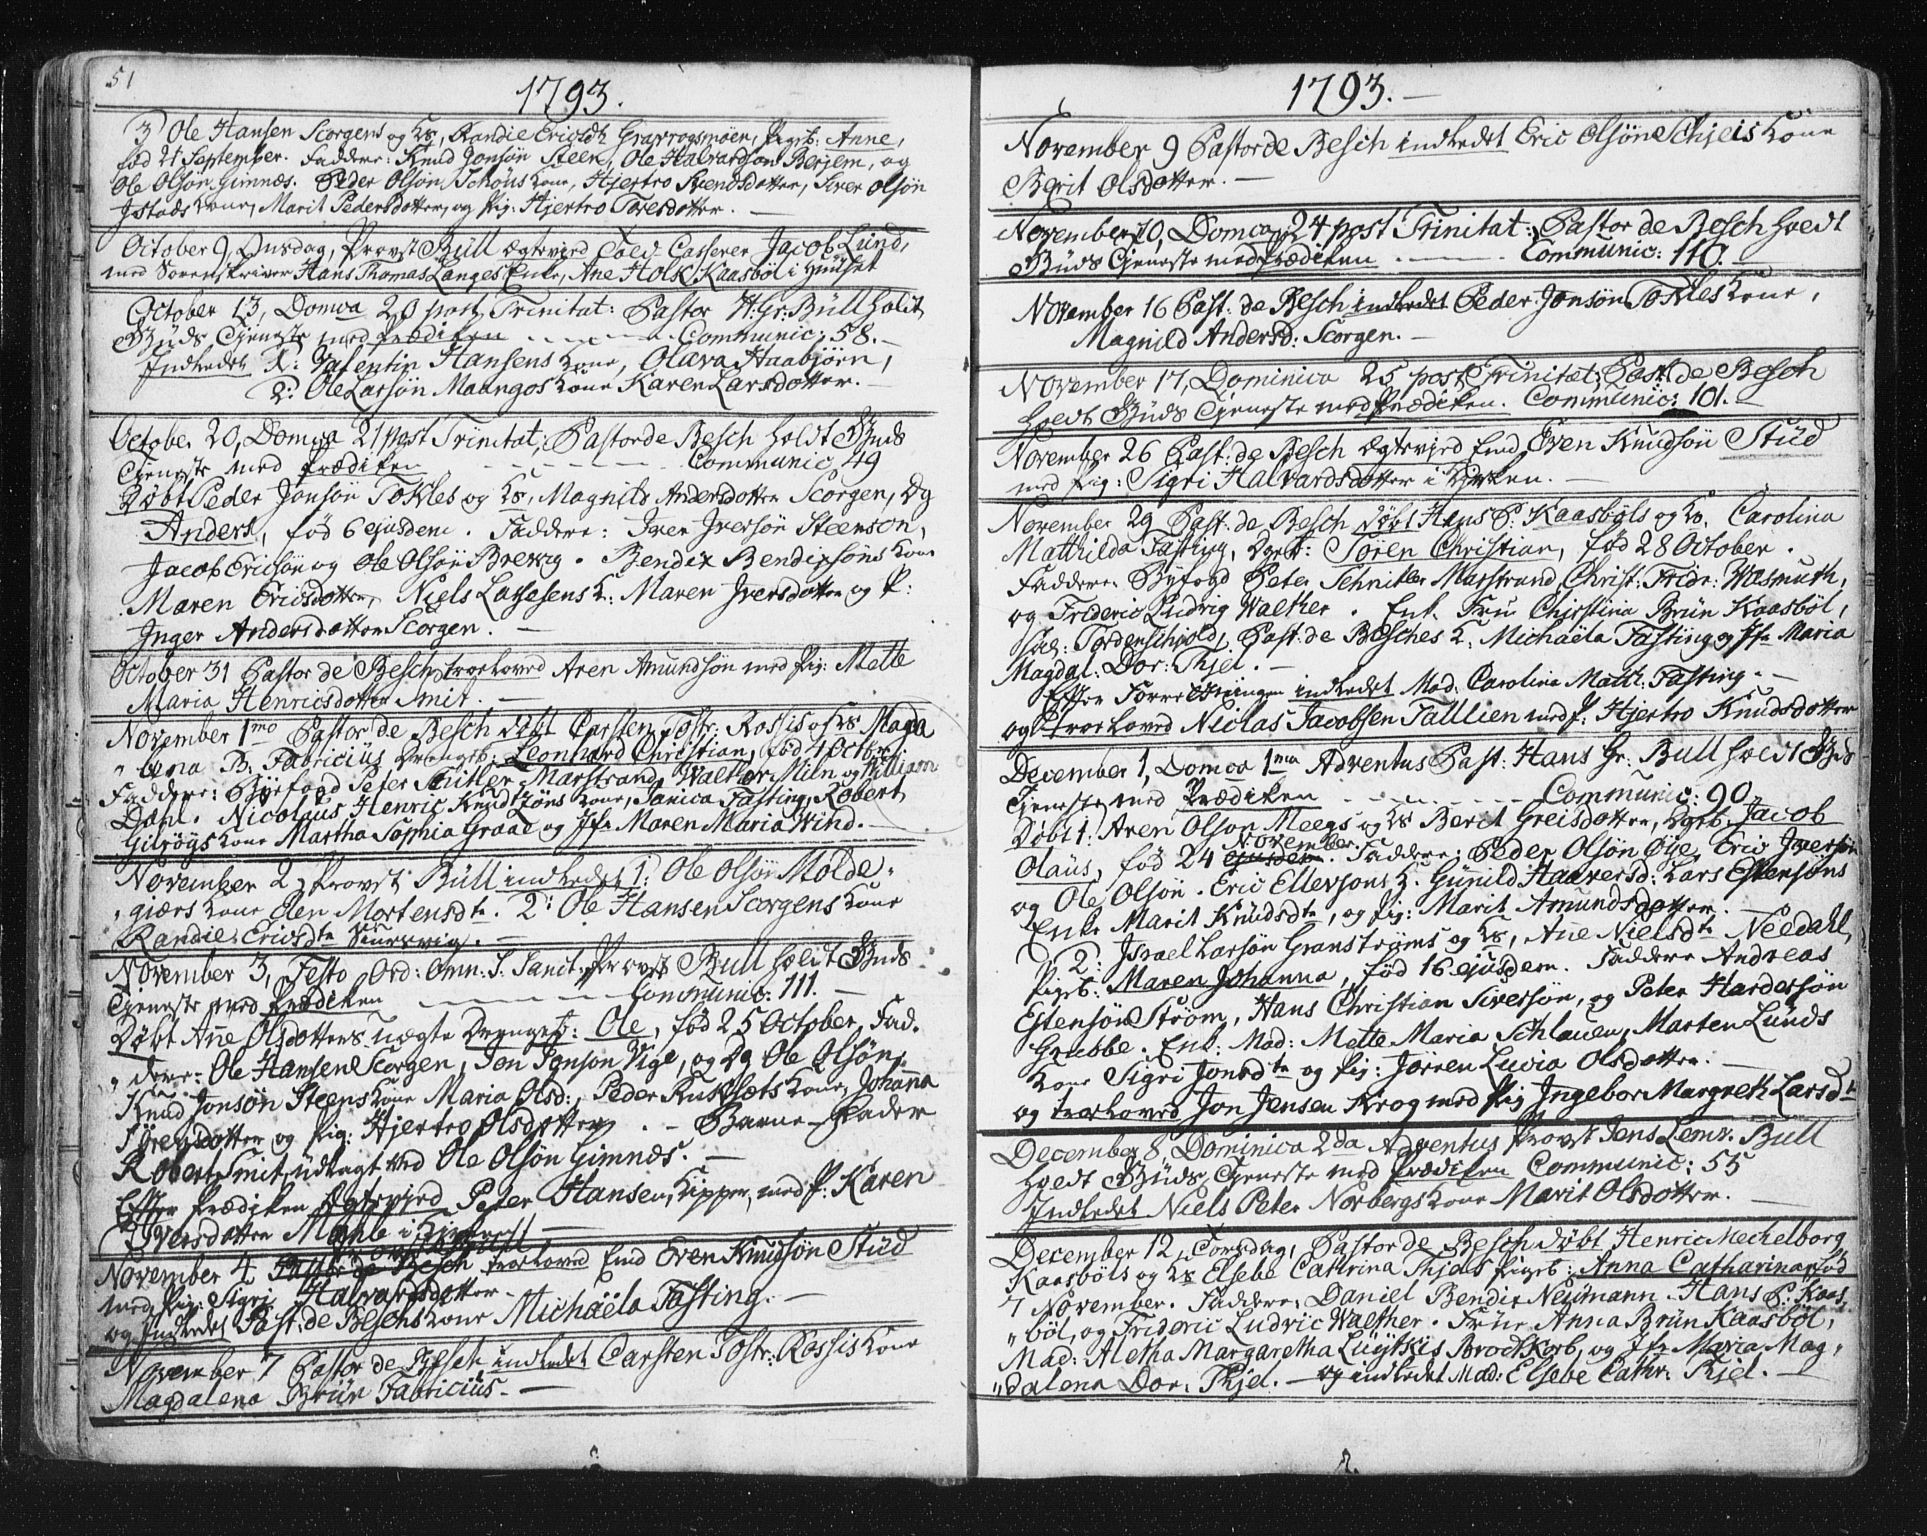 51
1793.
3) Ole Hansen Scorgens og K., Randie Ericsdtr Pigeb: Anne,
fød 21 September. Faddere: Knud Jonsøn Steen, Ole Halvardson Berjem, og
Ole Olsøn Gimnæs. Peder Olsøn Kone, Hjertro Svendsdotter, Siver Olsøn
Jstads Kone, Marit Pedersdotter, og Pig: Hjertro Toresdotter.
October 9, Onsdag, Provst Bull ægtevied Told Casserer Jacob Lund,
med Sorenskriver Hans Thomas Langes Enke, Ane Holk Kaasbøl i Huuset
October 13, Domca 20 post Trinitat: Pastor H: Gr: Bull holdt
Guds Tjeneste med Prædiken Communic: 58.
Indledet 1: Valentin Hansens Kone, Olava Haabjørn,
2: Ole Larsøn Maangos Kone Karen Larsdotter.
October 20, Domca 21 post Trinitat; Pastor de Besch holdt Guds
Tjeneste med Prædiken Communic 49
Døbt Peder Jonsøn Tokles og K., Magnild Andersdotter Scorgen, Dg
Anders, fød 6 ejusdem. Faddere: Iver Iversøn Steenson,
Jacob Ericsøn og Ole Olsøn Brevig. Bendix Bendixsøns Kone
Maren Ericsdotter, Niels Lassesens K: Maren Iversdotter og P:
Inger Andersdotter Scorgen.
October 31 Pastor de Besch troeloved Aren Amundsøn med Pig: Mette
Maria Henricsdotter Smit.
November 1mo Pastor de Besch døbt Carsten Tostr: Rossis og K. Magda
"lena B. Fabricius Drengeb, Leonhard Christian, fød 4 Octbr
Faddere: Byefogd Peter Snitler Marstrand, Walther Miln og William
Dahl. Nicolaus Henric Knudtzøns Kone, Janica Fasting, Robert
Gilrøys Kone Martha Sophia Graae og Jfr Maren Maria Wind.
November 2, Provst Bull indledet 1: Ole Olsøn Molde,
"giærs Kone Elen Mortensdtr. 2: Ole Hansen Scorgens Kone
Randie Ericsdtr
November 3, Festo Ord: Omn: S. Sanct. Provst Bull holdt Guds
Tjeneste med Prædiken Communic: 111.
Døbt Ane Olsdotters uægte Drengeb: Ole, fød 25 October, Fad,
"dere: Ole Hansen Scorgen, Jon Jonson Vige, og Dg Ole Olsøn,
Knud Jonsøn Steens Kone Maria Olsd:, Peder Kone, Johanna
Sørensdotter og Pig: Hjertro Olsdotter. - Barne-Fader
Robert Smit, udlagt ved Ole Olsøn Gimnæs.
Efter Prædiken Ægteviet Peter Hansen, Kipper, med P: Karen
Iversdotter i Kirken
Provst Bull
November 4 Past: de Besch troeloved Emd Even Knudsøn Stüd
med Pig: Sigri Halvarsdotter.
og Indledet Past: de Beschs Kone Michaëla Fasting.
November 7 Pastor de Besch indledet Carsten Tostr: Rossis Kone
Magdalena Brün Fabricius.
1793.
November 9 Pastor de Besch indledet Eric Olsøn Schjeis Kone
Berit Olsdotter.
November 10, Domca 24 post Trinitat: Pastor de Besch holdt
Guds Tjeneste med Prædiken Communic: 110.
November 16 Past: de Besch indledet Peder Jonsøn Tokles Kone,
Magnild Andersd: Scorgen.
November 17, Dominica 25 post Trinitat: Past de Besch
holdt Guds Tjeneste med Prædiken. Communic: 101.
November 26 Past: de Besch ægteviede Emd Even Knudsøn Stüd
med Pig: Sigri Halvardsdotter i Kirken.
November 29 Past: de Besch døbt Hans P: Kaasbøls og K. Carolina
Mathilda Fasting, Dgeb: Søren Christian, fød 28 October.
Faddere: Byfogd Peter Schnitler Marstrand, Christ: Fridr: Wasmuth,
og Frideric Ludvig Walther. Enk. Fru Christina Brün Kaasbøl,
fød: Tordenschiold, Past: de Besches K. Michaëla Fasting og Jfr Maria
Magdal: Dor: Thjel.
Efter Forretningen indledet Mad: Carolina Math: Fasting.
og troeloved Niclas Jacobsen Tallien med P: Hjertro Knudsdotter
December 1, Domca 1ma Adventus Past: Hans Gr: Bull holdt Guds
Tjeneste med Prædiken Communic: 90
Døbt 1: Aren Olson Meegs og K. Berit Greisdotter, Dgeb. Jacob
November
Olaus, fød 24 ejusdem. Faddere: Peder Olsøn Øye, Eric Iversøn
og Ole Olsøn. Eric Ellevsons K. Gunild Halversd: Lars Estensøns
Enke Marit Knudsdtr, og Pig: Marit Amundsdotter.
2: Israel Larsøn Granstrøms og K., Ane Nielsdtr Needahl,
Pigeb: Maren Johanna, fød 16 ejusdem. Faddere Andreas
Estensøn Strøm, Hans Christian Siversøn, og Peter Hardersøn
Grubbe. Enk: Mad: Mette Maria Schlauen, Morten Lunds
Kone Sigri Jonsdtr og Pig: Jørren Lucia Olsdotter.
og troeloved Jon Jensen Krog med Pig Ingebor Margreth Larsdtr
December 8, Dominica 2da Adventus Provst Jens Lemv. Bull
holdt Guds Tjeneste med Prædiken Communic: 55
Indledet Niels Peter Norbergs Kone Marit Olsdotter.
December 12, Torsdag, Pastor de Besch døbt Henric Mechelborg
Kaasbøls og K. Elsebe Cathrina Thjels Pigeb: Anna Catharina fød
7 November. Faddere: Daniel Bendix Neümann. Hans P: Kaas,
"bøl, og Frideric Ludvic Walther. Frue Anna Brün Kaasbøl,
Mad: Aletha Margaretha Brodtkorb, og Jfr Maria Mag,
"dalena Dor: Thjel. - og indledet Mad: Elsebe Cathr: Thjel.